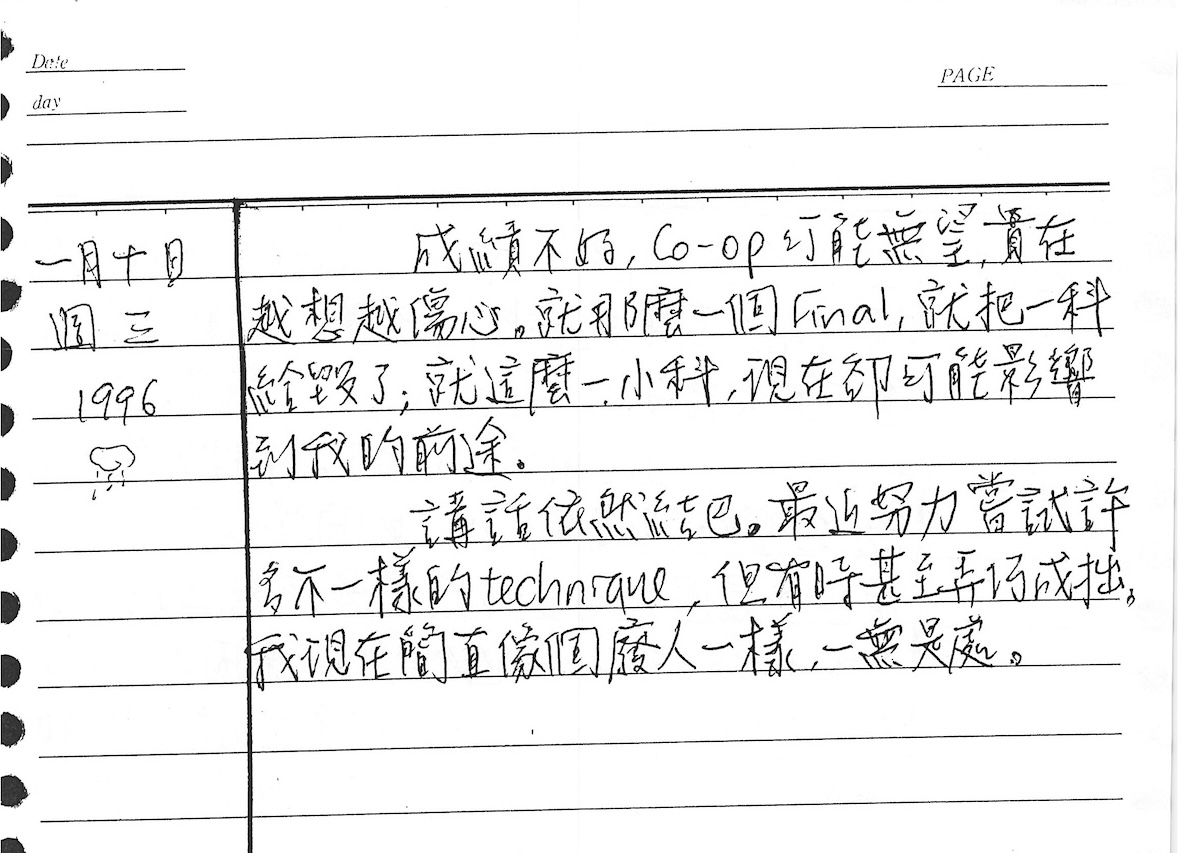 Date
day
PAGE
一月十日
週三
1996
成績不好, Co-op可能無望, 實在
越想越傷心。就那麼一個Final, 就把一科
給毀了; 就這麼一小科, 現在卻可能影響
到我的前途。
講話依然結巴。最近努力嘗試許
多不一樣的technique, 但有時甚至弄巧成拙。
我現在簡直像個廢人一樣, 一無是處。